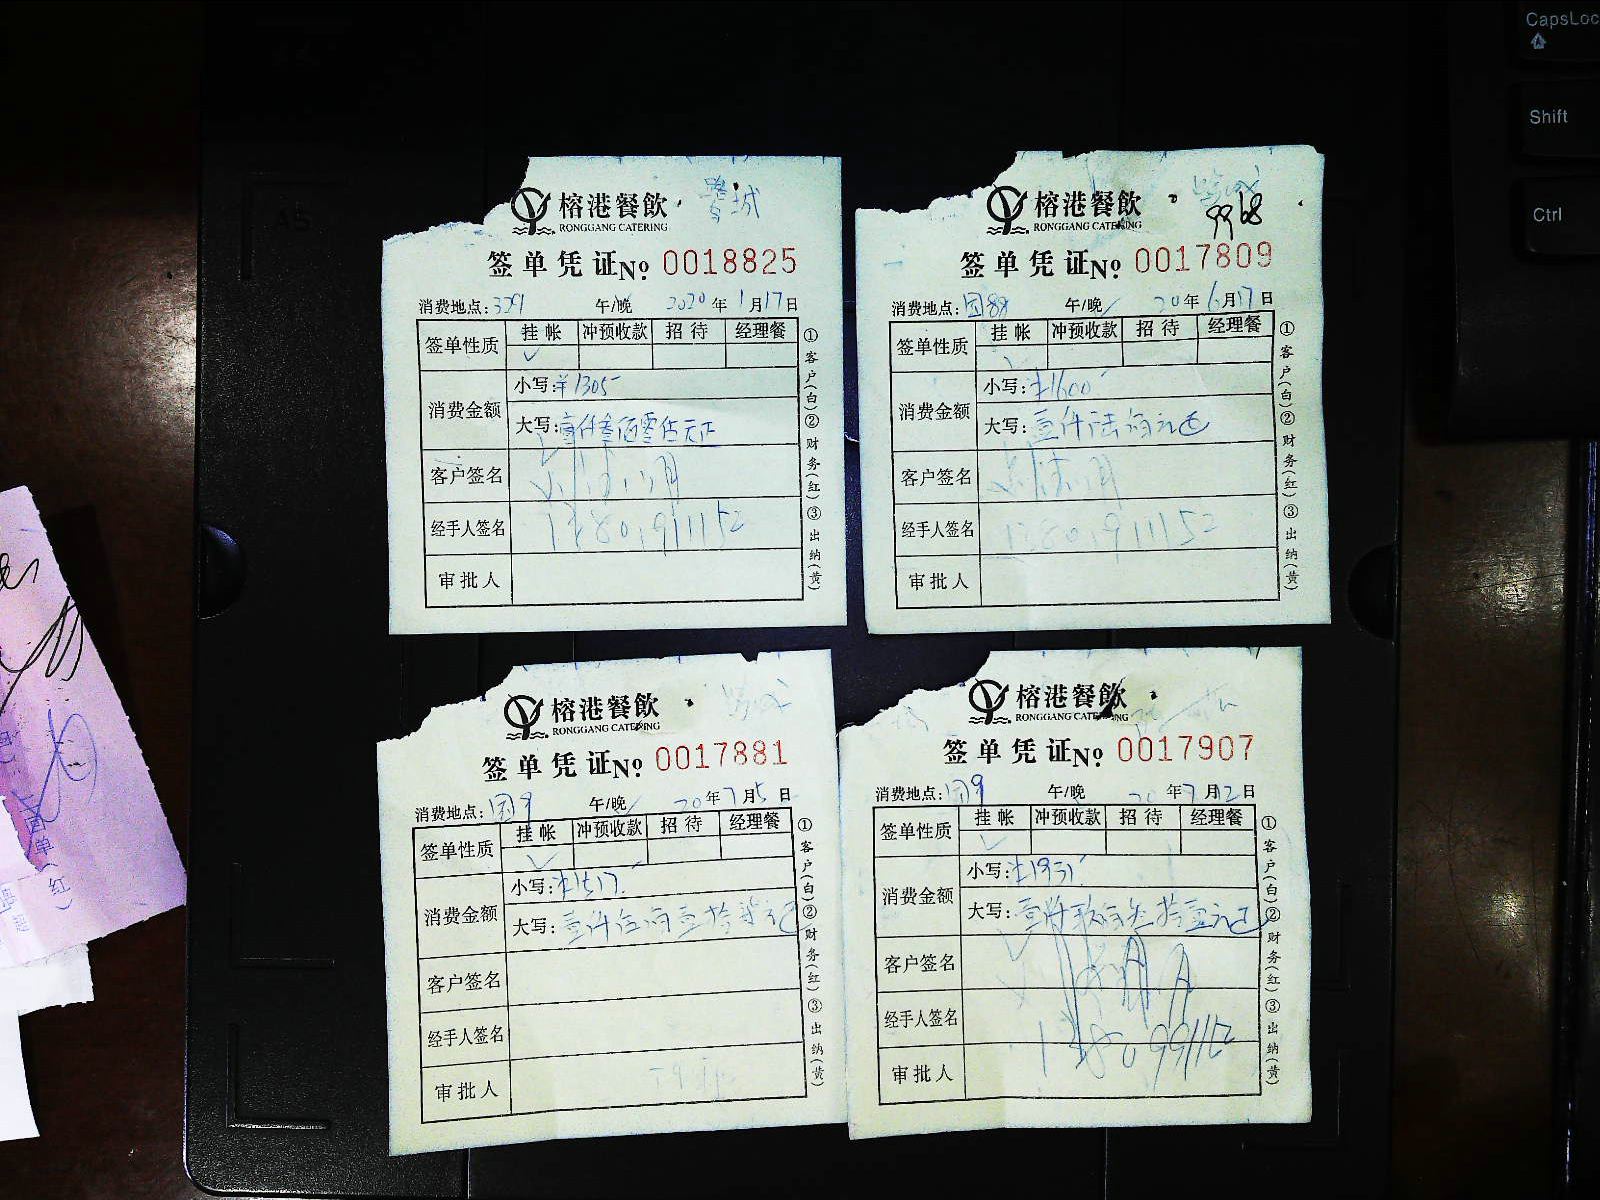 榕港餐飲 鹭城
RONGGANG CATERING
签单凭证No. 0018825
消费地点:329 午/晚 2020年1月17日
签单性质 挂帐 冲预收款 招待 经理餐
消费金额
小写:¥1305
大写:壹仟叁佰零伍元正
客户签名
经手人签名
审批人
①客户(白)②财务(红)③出纳(黄)
榕港餐飲
9968
RONGGANG CATERING
签单凭证No. 0017809
消费地点: 午/晚 20年6月17日
签单性质 挂帐 冲预收款 招待 经理餐
消费金额
小写:¥1600
大写:壹仟陆佰元正
客户签名
经手人签名
审批人
①客户(白)②财务(红)③出纳(黄)
榕港餐飲
RONGGANG CATERING
签单凭证No. 0017881
消费地点: 午/晚 20年7月5日
签单性质 挂帐 冲预收款 招待 经理餐
消费金额
小写:¥1517
大写:壹仟伍佰壹拾柒元正
客户签名
经手人签名
审批人
①客户(白)②财务(红)③出纳(黄)
榕港餐飲
RONGGANG CATERING
签单凭证No. 0017907
消费地点: 午/晚 20年7月12日
签单性质 挂帐 冲预收款 招待 经理餐
消费金额
小写:¥1931
大写:壹仟玖佰叁拾壹元正
客户签名
经手人签名
审批人
①客户(白)②财务(红)③出纳(黄)
CapsLoc
Shift
Ctrl
单(红)